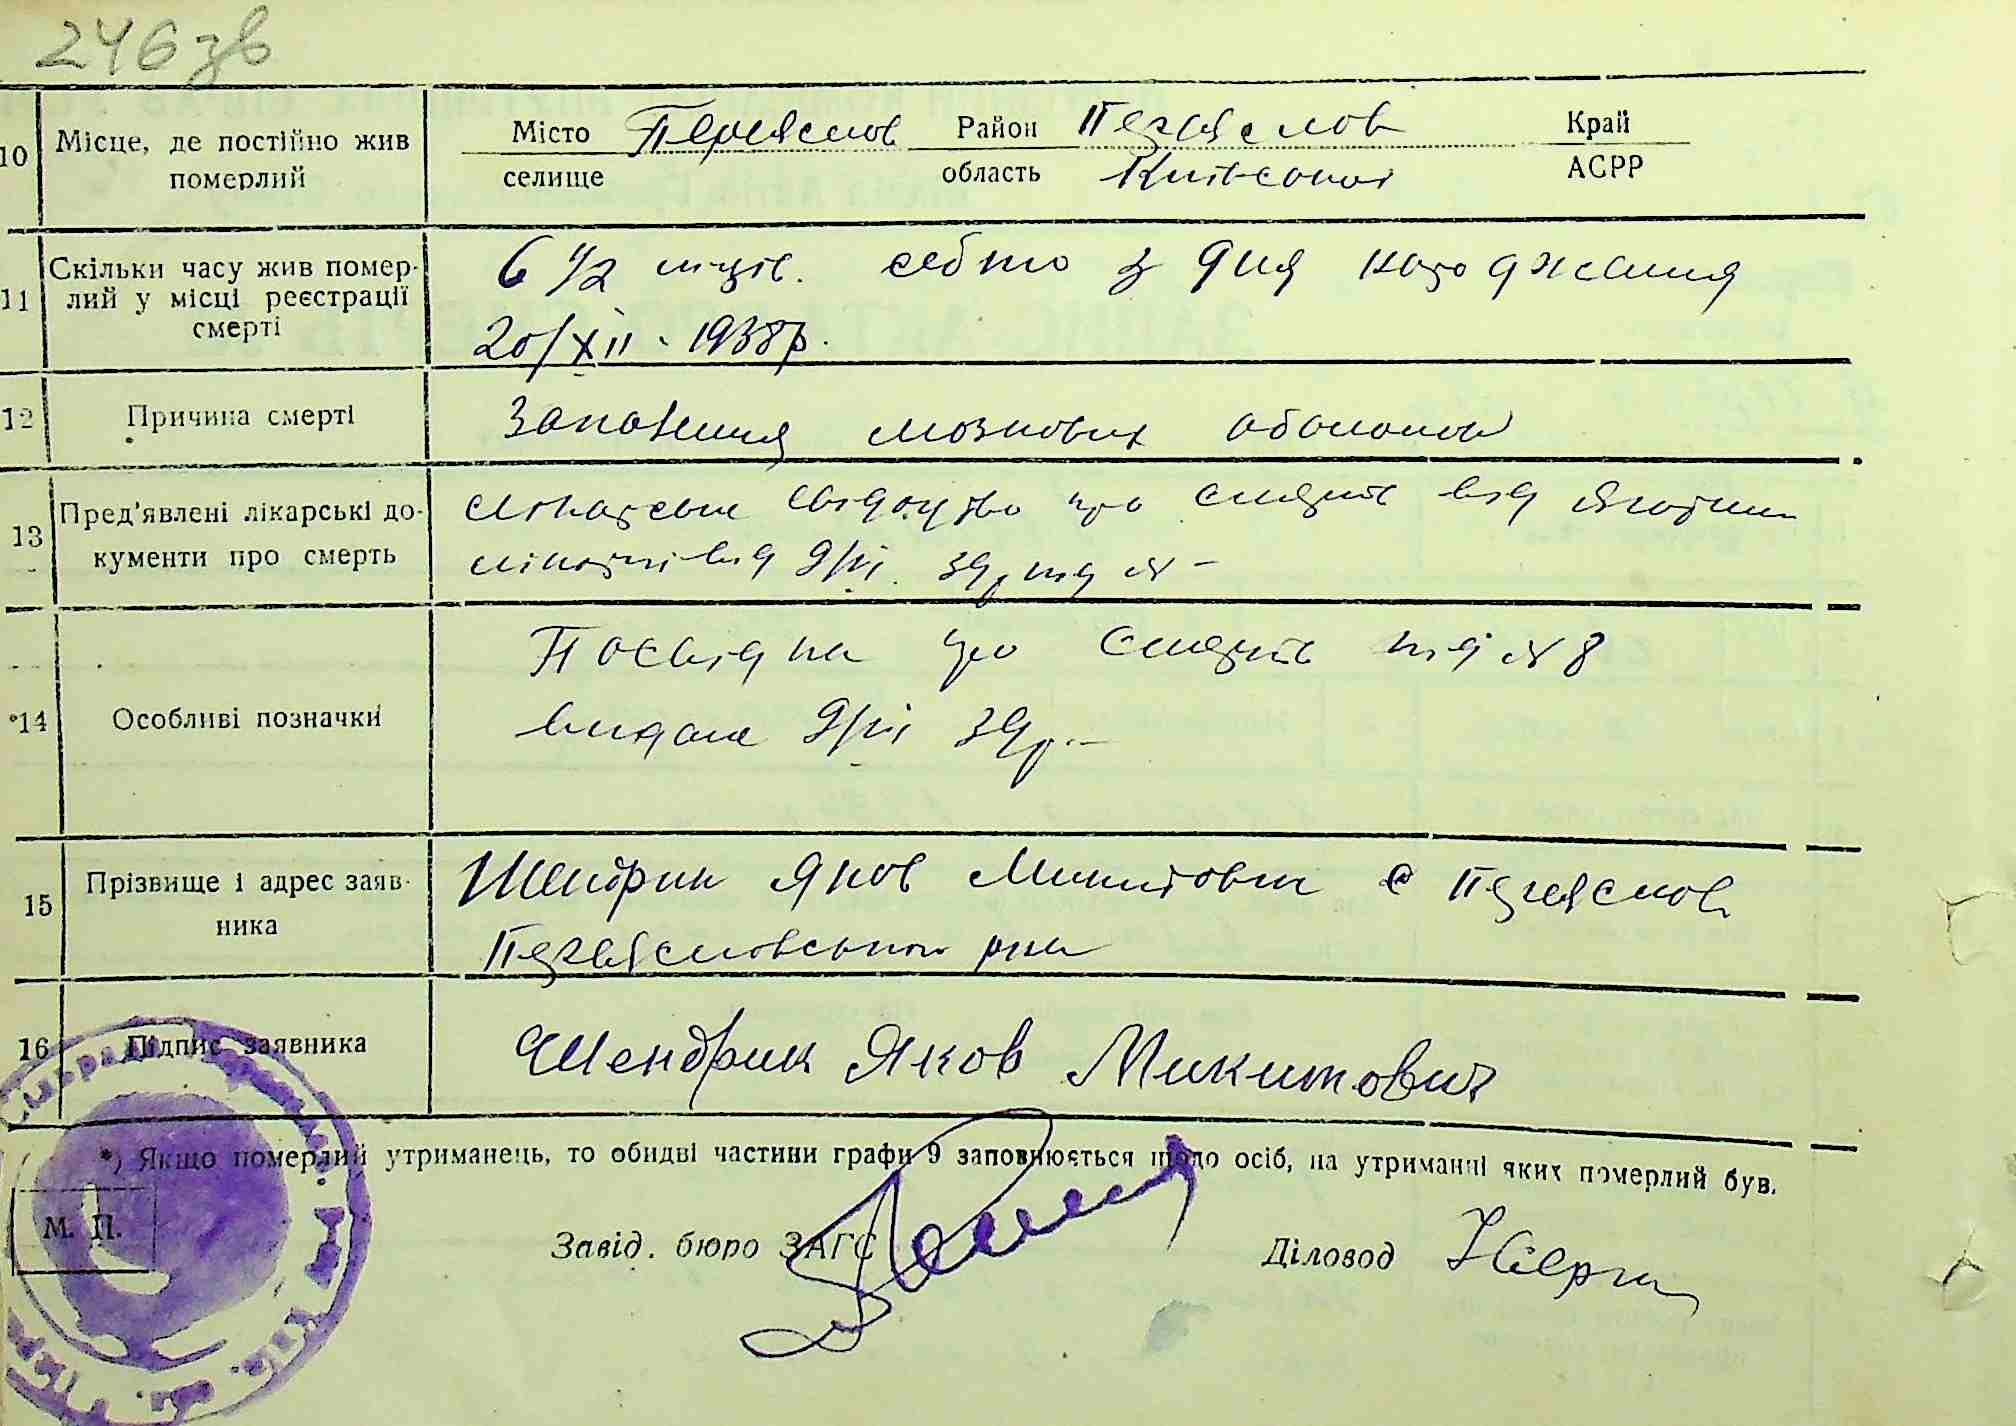 246 зв
10 Місце, де постійно жив померлий
Місто Переяслов Район Переяслов Край
селище область Київської АСРР
11 Скільки часу жив помер-
лий у місці реєстрації
смерті
6 1/2 місів. себто з дня народження
20/XII. 1938р.
12 Причина смерті
Запалення мозкових оболонок
13 Пред'явлені лікарські до-
кументи про смерть
лікарське свідоцтво про смерть від
лікарні від 9/VII 39р під № -
14 Особливі позначки
Посвідка про смерть під № 8
видана 9/VII 39р. -
15 Прізвище і адрес заяв-
ника
Шендрик Яков Микитович с Переяслов
Переясловського р-на
16 Підпис заявника
Шендрик Яков Микитович
*) Якщо померлий утриманець, то обидві частини графи 9 заповнюється щодо осіб, на утриманні яких померлий був.
М. П.
Завід. бюро ЗАГС
Діловод